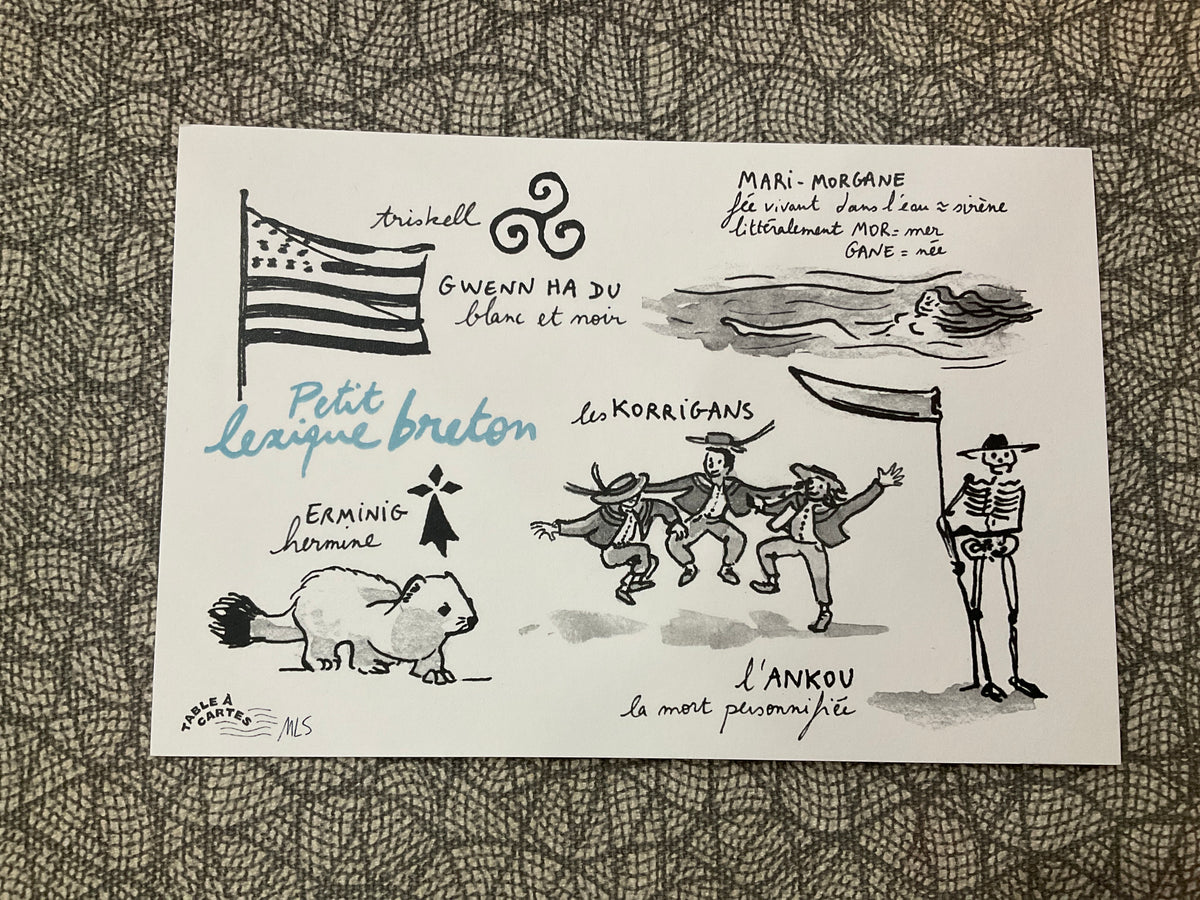 triskell
GWENN HA DU
blanc et noir
MARI-MORGANE
fée vivant dans l'eau ≈ sirène
littéralement MOR = mer
GANE = née
Petit
lexique breton
les KORRIGANS
ERMINIG
hermine
l'ANKOU
la mort personnifiée
TABLE À
CARTES
MLS